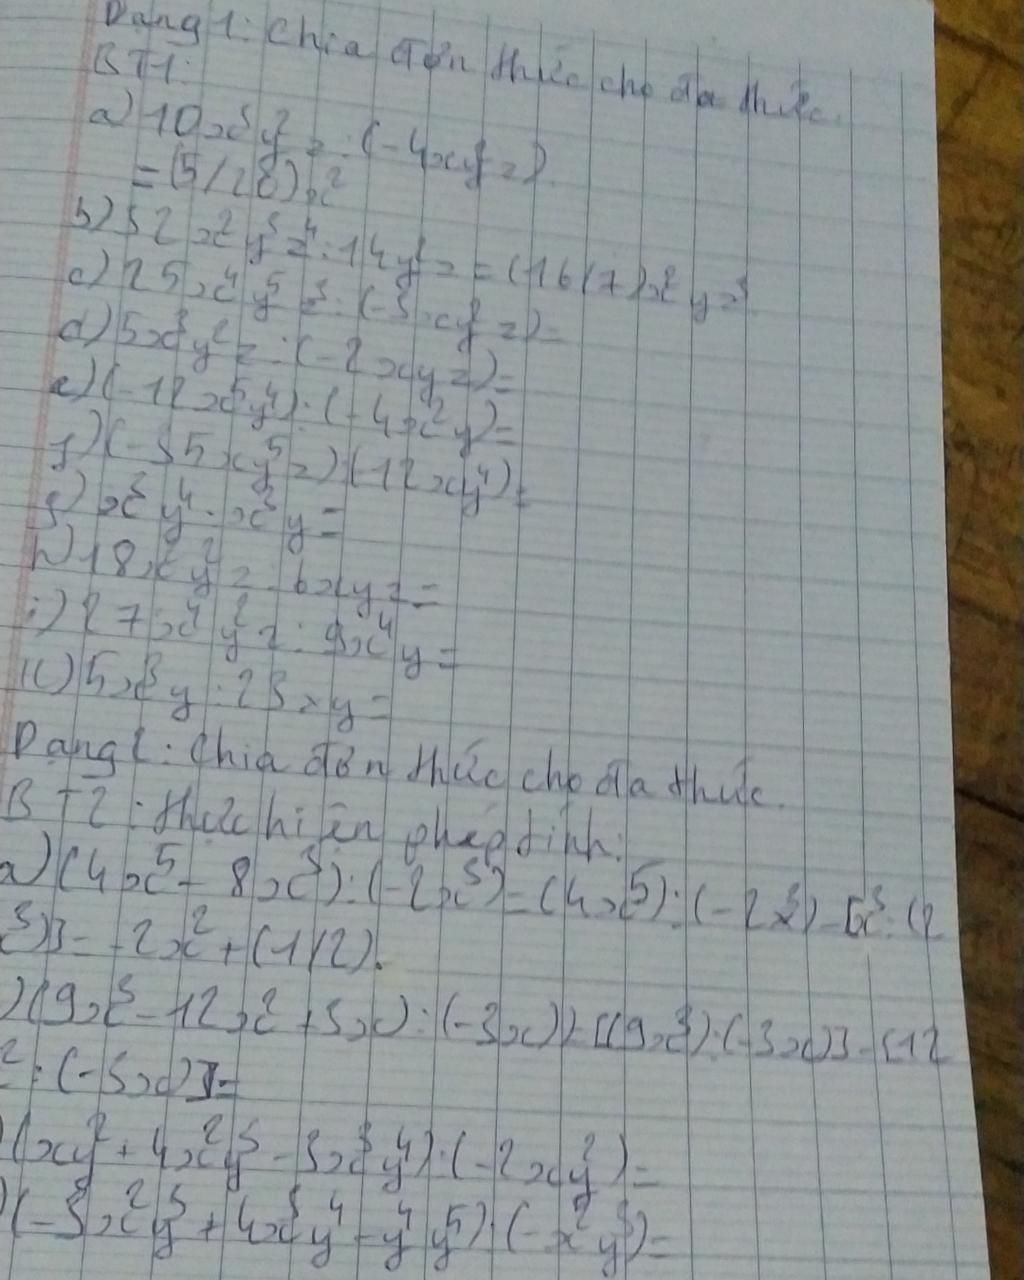 Dạng 1: Chia đơn thức cho đa thức.
BT1:
a) 10x³y²z : (-4xy²z)
= (5/28)x²
b) 32x²y³z⁴ : 14y²z = (16/7)x²yz³
c) 25x⁴y⁵z³ : (-3xy²z) =
d) 5x³y²z : (-2xyz) =
e) (-12x⁵y⁴) : (-4x²y) =
f) (-35xy⁵z) (-12xy⁴) =
g) x³y⁴ : x³y =
h) 18x²y²z : 6xyz =
i) 27x⁴y²z : 9x⁴y =
k) 5x³y : 23xy =
Dạng 2: Chia đơn thức cho đa thức.
BT2: thực hiện phép tính:
a) (4x⁵ - 8x³) : (-2x³) = (4x⁵) : (-2x³) - [x³ : (2
x³)] = -2x² + (1/2).
) (9x³ - 12x² + 3x) : (-3x) = [(9x³) : (-3x)] - [12
² : (-3x)] =
) (xy² + 4x²y³ - 3x³y⁴) : (-2xy²) =
) (-3x²y³ + 4x³y⁴ - y⁴y⁵) : (-x²y³) =